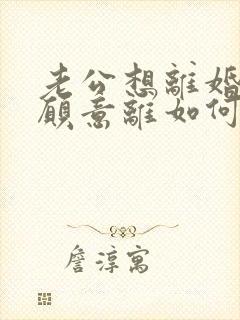 老公想離婚
願意離如何
詹淳寓